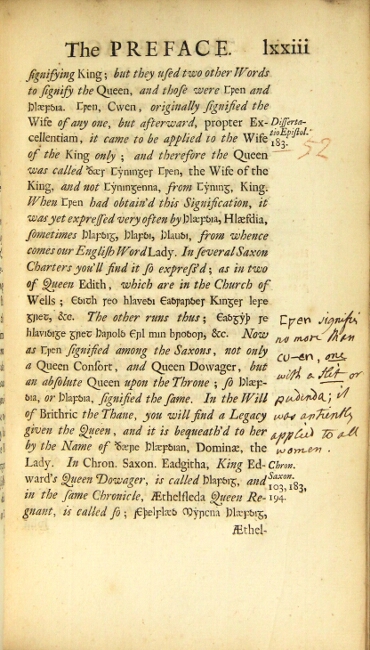 The PREFACE. lxxiii
ſignifying King; but they uſed two other Words
to ſignify the Queen, and thoſe were Cƿen and
Ꝥlæꝼꝺia. Cƿen, Cwen, originally ſignified the
Wife of any one, but afterward, propter Ex-
cellentiam, it came to be applied to the Wife
of the King only; and therefore the Queen
was called ðær Cyninger Cƿen, the Wife of the
King, and not Cyningenna, from Cyning, King.
When Cƿen had obtain'd this Signification, it
was yet expreſſed very often by Hlæꝼꝺia, Hlæfdia,
ſometimes Hlaꝼꝺig, Hlaꝼꝺi, Hlauꝺi, from whence
comes our Engliſh Word Lady. In ſeveral Saxon
Charters you'll find it ſo expreſs'd; as in two
of Queen Edith, which are in the Church of
Wells; Eꝺith ꞅeo hlaveꝺi Eaꝺƿaꞃꝺeꞅ Kingeꞅ
gꞃet, &c. The other runs thus;
&c. Now
as Cƿen ſignified among the Saxons, not only
a Queen Confort, and Queen Dowager, but
an abſolute Queen upon the Throne; ſo Hlæꝼ-
ꝺia, or Hlaꝼꝺig, ſignified the ſame. In the Will
of Brithric the Thane, you will find a Legacy
given the Queen, and it is bequeath'd to her
by the Name of ðæꞃe Hlæꝼꝺian, Dominæ, the
Lady. In Chron. Saxon. Eadgitha, King Ed-
ward's Queen Dowager, is called Hlaꝼꝺig, and
in the ſame Chronicle, Æthelfleda Queen Re-
gnant, is called ſo; Æþelꝼlæꝺ Myꞃcna Hlæꝼꝺig,
Æthel-
Diſſerta-
tio Epiſtol.
183.
52
Cƿen signifi
no more than
cu-en, one
with a slit or
pudinda; it
was antiently
applied to all
women.
Chron.
Saxon.
103, 183,
194.